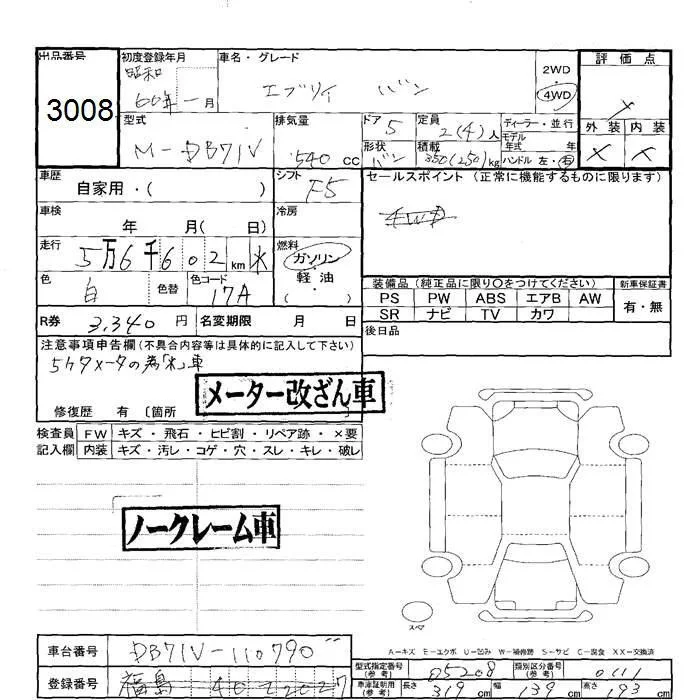 出品番号 3008
初度登録年月 昭和 60年 - 月
車名・グレード エブリイ バン
2WD
4WD
評価点
外装 × 内装 ×
型式 M-DB71V
排気量 540 cc
ドア 5
形状 バン
定員 2(4)人
積載 350(250)kg
ディーラー・並行
モデル年式 年
ハンドル 左・右
車歴 自家用・( )
シフト F5
セールスポイント (正常に機能するものに限ります)
4WD
車検 年 月( 日)
冷房
走行 5万6千602km
燃料 ガソリン 軽油 ・( )
色 白 色替 色コード 17A
装備品 (純正品に限り○をつけてください)
新車保証書
PS PW ABS エアB AW
SR ナビ TV カワ
有・無
R券 3,340円 名変期限 月 日
後日品
注意事項申告欄 (不具合内容等は具体的に記入して下さい)
5ケタメータの為「木」車
メーター改ざん車
修復歴 有 〔箇所
検査員 FW キズ・飛石・ヒビ割・リペア跡・×要
記入欄 内装 キズ・汚レ・コゲ・穴・スレ・キレ・破レ
ノークレーム車
スペア
A-キズ E-エクボ U-凹み W-補修跡 S-サビ C-腐食 XX-交換済
車台番号 DB71V-110790
型式指定番号 (参考) 05208
類別区分番号 (参考) 0111
登録番号 福島 40
車庫証明用 (参考) 長さ 319cm 幅 139cm 高さ 183cm